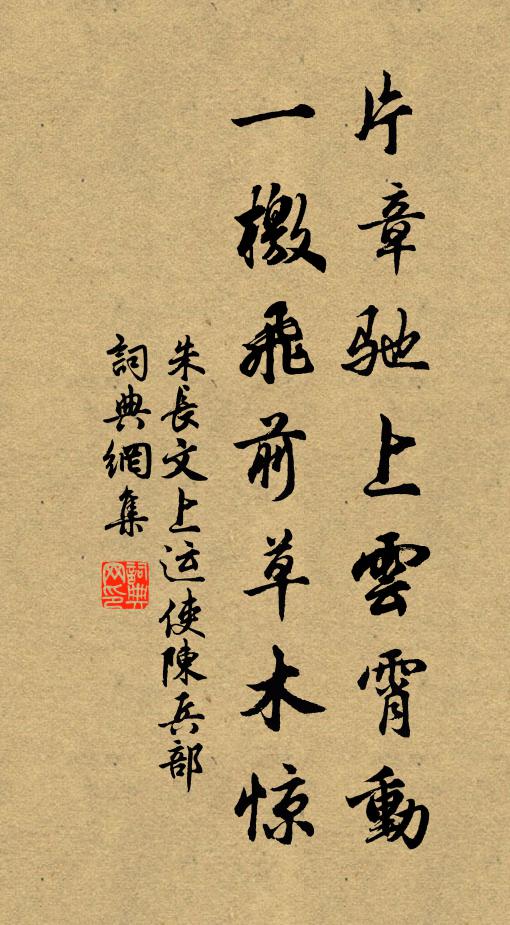 片章馳上雲霄動
一檄飛前草木惊
朱長文上运使陳兵部
詞典網集
詞典网印